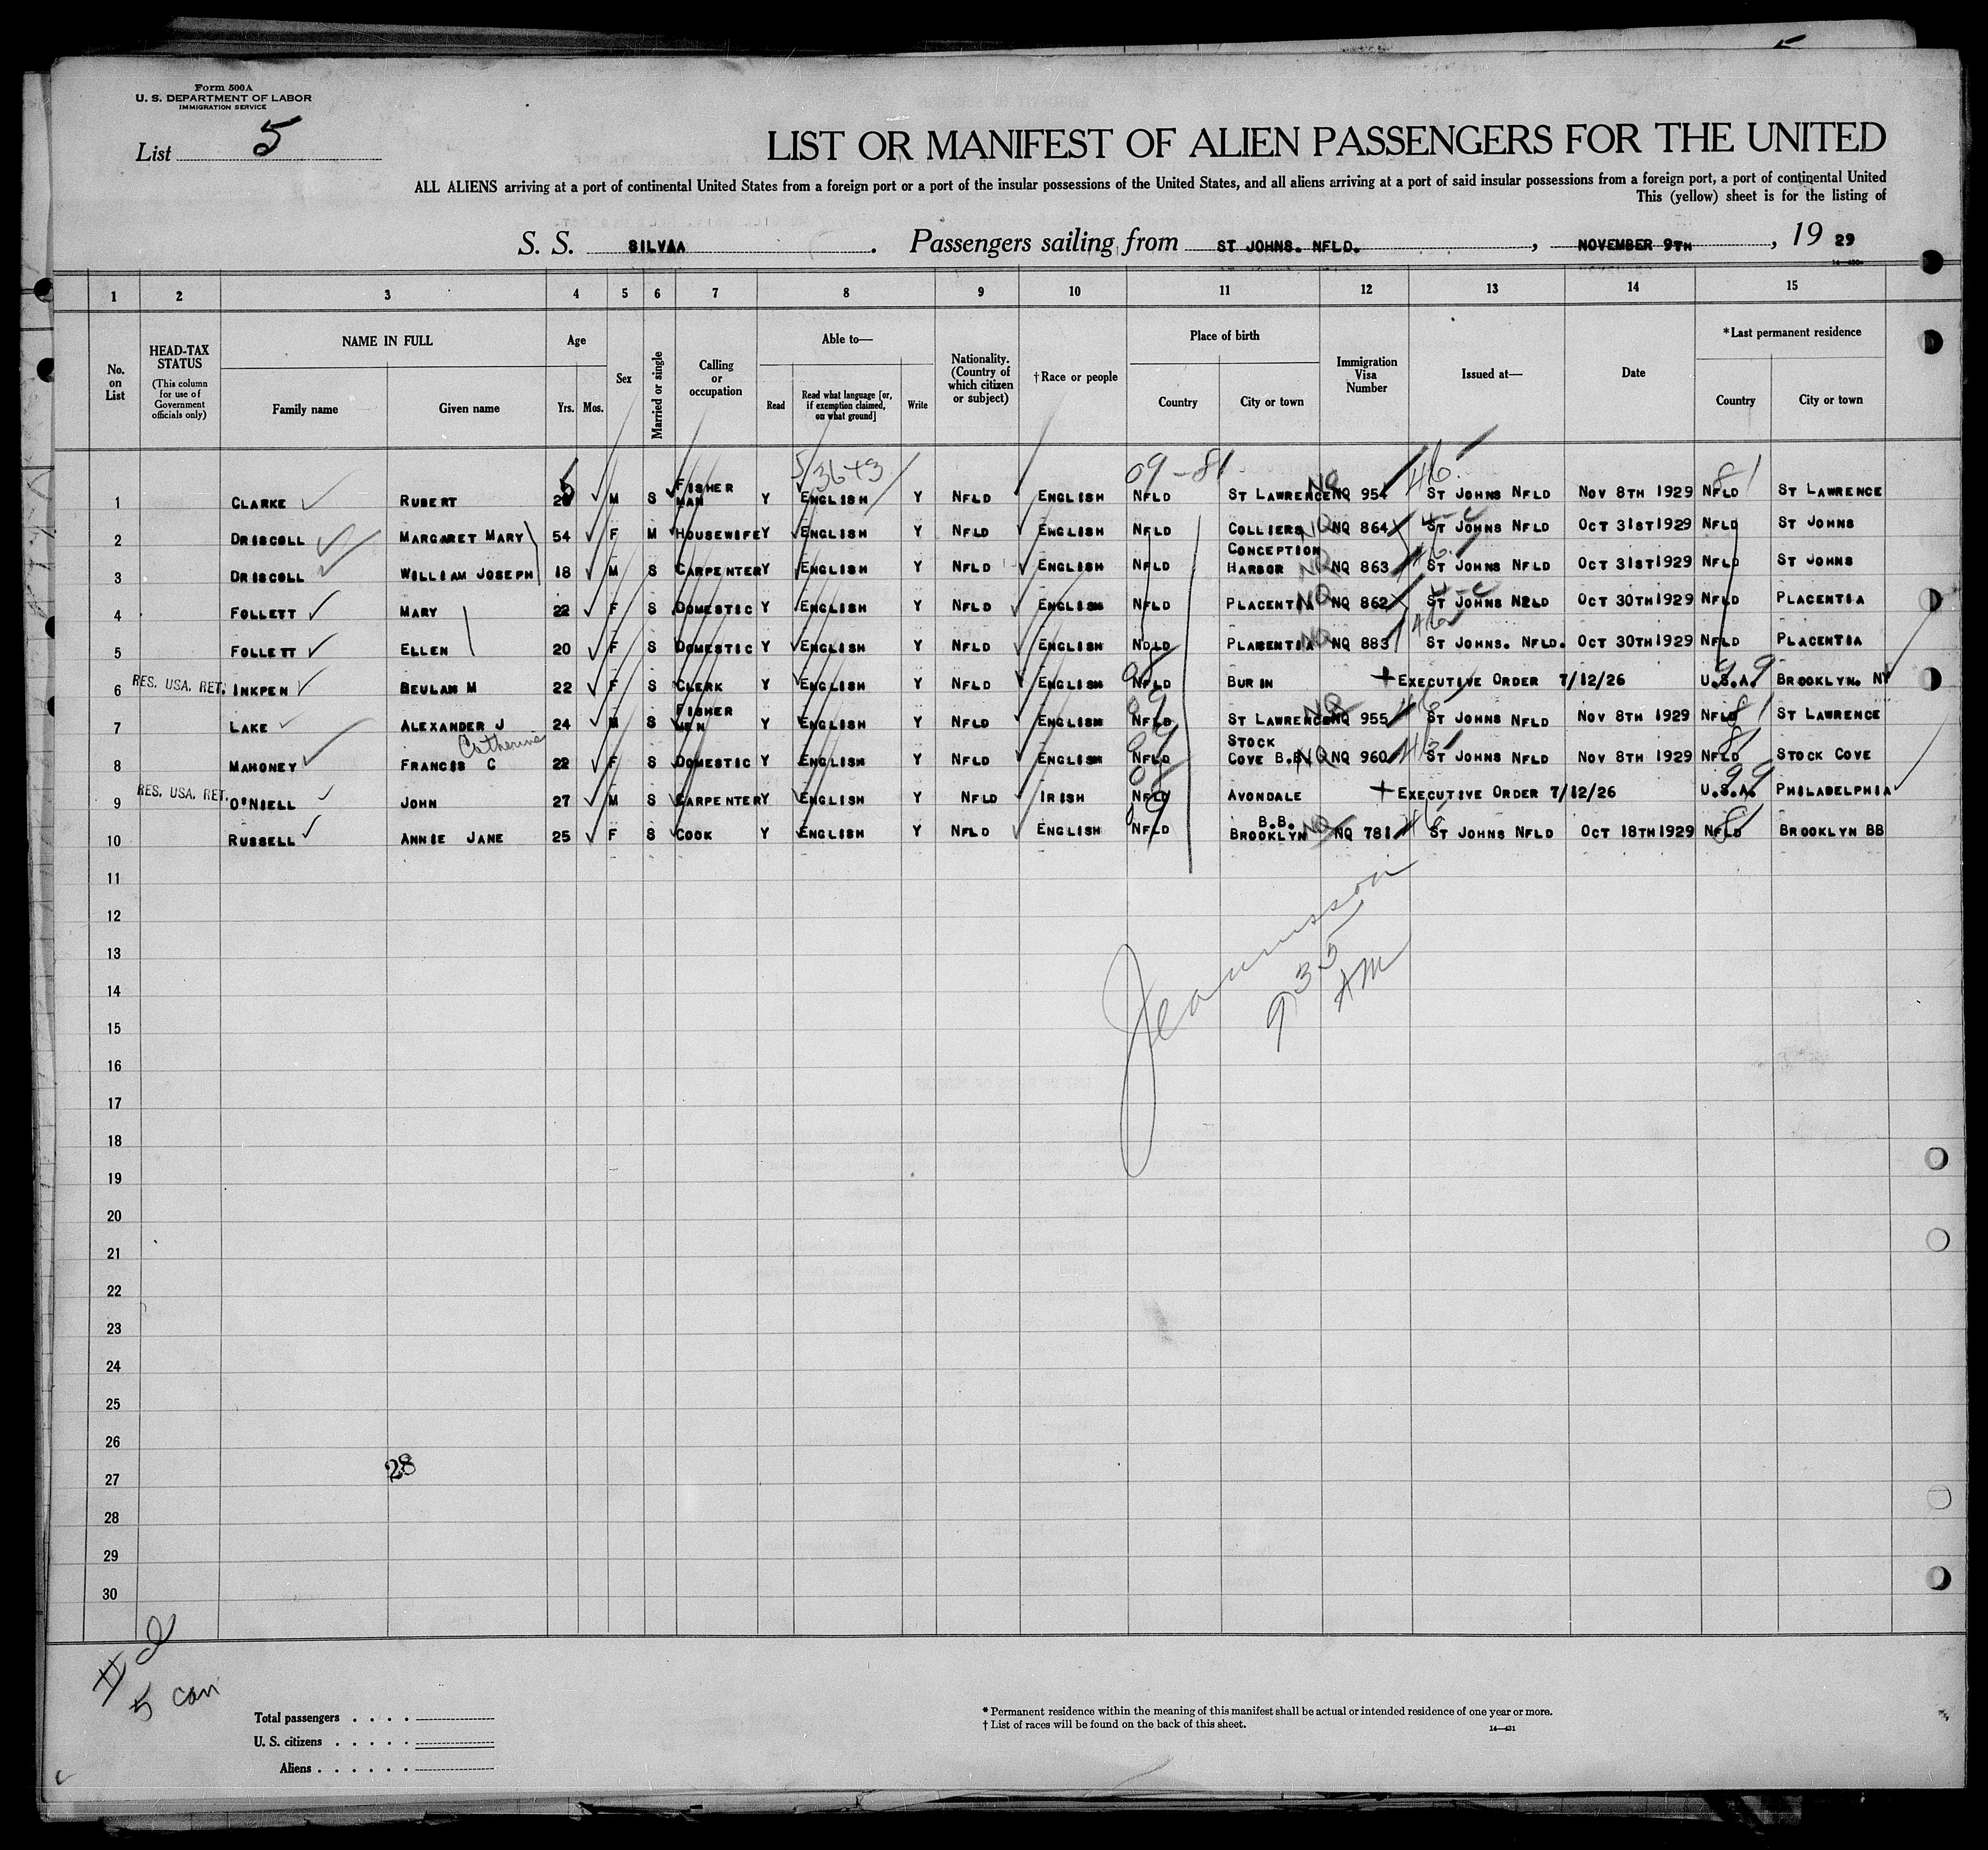 Form 500A
U. S. DEPARTMENT OF LABOR
IMMIGRATION SERVICE
List 5
LIST OR MANIFEST OF ALIEN PASSENGERS FOR THE UNITED
ALL ALIENS arriving at a port of continental United States from a foreign port or a port of the insular possessions of the United States, and all aliens arriving at a port of said insular possessions from a foreign port, a port of continental United
This (yellow) sheet is for the listing of
S. S. SILVIA . Passengers sailing from ST JOHNS. NFLD. , NOVEMBER 9TH , 19 29
1 2 3 4 5 6 7 8 9 10 11 12 13 14 15
No. on List
HEAD-TAX STATUS (This column for use of Government officials only)
NAME IN FULL Family name Given name
Age Yrs. Mos.
Sex
Married or single
Calling or occupation
Able to— Read Read what language [or, if exemption claimed, on what ground] Write
Nationality. (Country of which citizen or subject)
†Race or people
Place of birth Country City or town
Immigration Visa Number
Issued at—
Date
*Last permanent residence Country City or town
5/3643 09-81 46
1 CLARKE RUBERT M S FISHER MAN Y ENGLISH Y NFLD ENGLISH NFLD ST LAWRENCE NQ NQ 954 ST JOHNS NFLD NOV 8TH 1929 NFLD 81 ST LAWRENCE
2 DRISCOLL MARGARET MARY 54 F M HOUSEWIFE Y ENGLISH Y NFLD ENGLISH NFLD COLLIERS NQ NQ 864 ST JOHNS NFLD OCT 31ST 1929 NFLD ST JOHNS
3 DRISCOLL WILLIAM JOSEPH 18 M S CARPENTER Y ENGLISH Y NFLD ENGLISH NFLD CONCEPTION HARBOR NQ NQ 863 46 ST JOHNS NFLD OCT 31ST 1929 NFLD ST JOHNS
4 FOLLETT MARY 22 F S DOMESTIC Y ENGLISH Y NFLD ENGLISH NFLD PLACENTIA NQ NQ 862 ST JOHNS N2LD OCT 30TH 1929 NFLD PLACENTIA
5 FOLLETT ELLEN 20 F S DOMESTIC Y ENGLISH Y NFLD ENGLISH NDLD PLABENTIA NQ NQ 883 46 ST JOHNS. NFLD. OCT 30TH 1929 NFLD PLACENTIA
6 RES. USA. RET. INKPEN BEULAH M 22 F S CLERK Y ENGLISH Y NFLD ENGLISH NFLD BURIN + EXECUTIVE ORDER 7/12/26 U.S.A. 99 BROOKLYN. NY
7 LAKE ALEXANDER J 24 M S FISHER MEN Y ENGLISH Y NFLD ENGLISH NFLD ST LAWRENCE NQ NQ 955 46 ST JOHNS NFLD NOV 8TH 1929 NFLD 81 ST LAWRENCE
8 MAHONEY FRANCIS C Catherine 22 F S DOMESTIC Y ENGLISH Y NFLD ENGLISH NFLD STOCK COVE B.B NQ NQ 960 46 ST JOHNS NFLD NOV 8TH 1929 NFLD 81 STOCK COVE
9 RES. USA. RET. O'NIELL JOHN 27 M S CARPENTER Y ENGLISH Y NFLD IRISH NFLD AVONDALE + EXECUTIVE ORDER 7/12/26 U.S.A. 99 PHILADELPHIA
10 RUSSELL ANNIE JANE 25 F S COOK Y ENGLISH Y NFLD ENGLISH NFLD B.B. BROOKLYN NQ NQ 781 46 ST JOHNS NFLD OCT 18TH 1929 NFLD 81 BROOKLYN BB
11
12
13
14
15
16
17
18
19
20
21
22
23
24
25
26
27
28
29
30
9 35
AM
28
5 can
Total passengers . . . .
U. S. citizens . . . . .
Aliens . . . . . .
* Permanent residence within the meaning of this manifest shall be actual or intended residence of one year or more.
† List of races will be found on the back of this sheet.
14—431